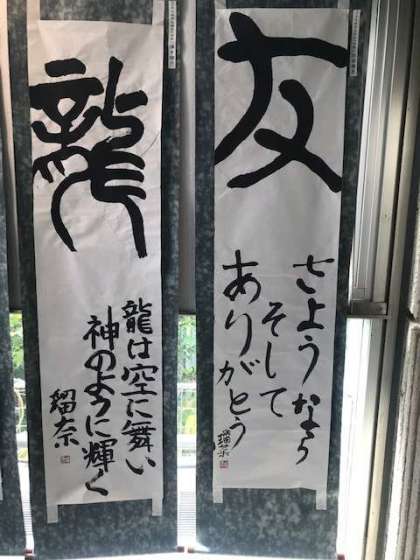 友
さようなら
そして
ありがとう
龍
龍は空に舞い
神のように輝く
瑠奈